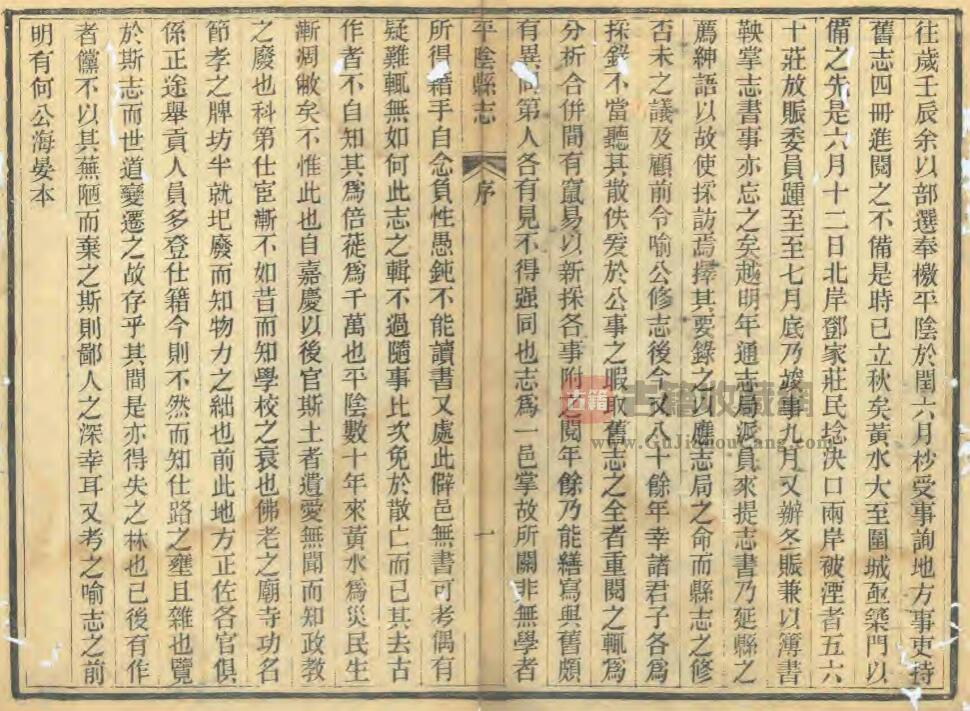 往歲壬辰余以部選奉檄平陰於閏六月杪受事詢地方事吏持
舊志四冊進閱之不備是時已立秋矣黃水大至圍城亟築門以
備之先是六月十二日北岸鄧家莊民埝決口兩岸被湮者五六
十莊放賑委員踵至至七月底乃竣事九月又辦冬賑兼以簿書
鞅掌志書事亦忘之矣越明年通志局派員來提志書乃延縣之
薦紳語以故使採訪焉擇其要錄之以應志局之命而縣志之修
否未之議及顧前令喻公修志後今又八十餘年幸諸君子各為
採錄不當聽其散佚爰於公事之暇取舊志之全者重閱之輒為
分析合併間有竄易以新採各事附之閱年餘乃能繕寫與舊頗
有異同第人各有見不得强同也志為一邑掌故所關非無學者
平陰縣志
序
一
所得藉手自念負性愚鈍不能讀書又處此僻邑無書可考偶有
疑難輒無如何此志之輯不過隨事比次免於散亡而已其去古
作者不自知其為倍蓰為千萬也平陰數十年來黃水為災民生
漸凋敝矣不惟此也自嘉慶以後官斯土者遺愛無聞而知政教
之廢也科第仕宦漸不如昔而知學校之衰也佛老之廟寺功名
節孝之牌坊半就圮廢而知物力之絀也前此地方正佐各官俱
係正途舉貢人員多登仕籍今則不然而知仕路之壅且雜也覽
於斯志而世道變遷之故存乎其間是亦得失之林也已後有作
者儻不以其蕪陋而棄之斯則鄙人之深幸耳又考之喻志之前
明有何公海晏本
古籍
古籍收藏網
www.GuJiShouCang.com